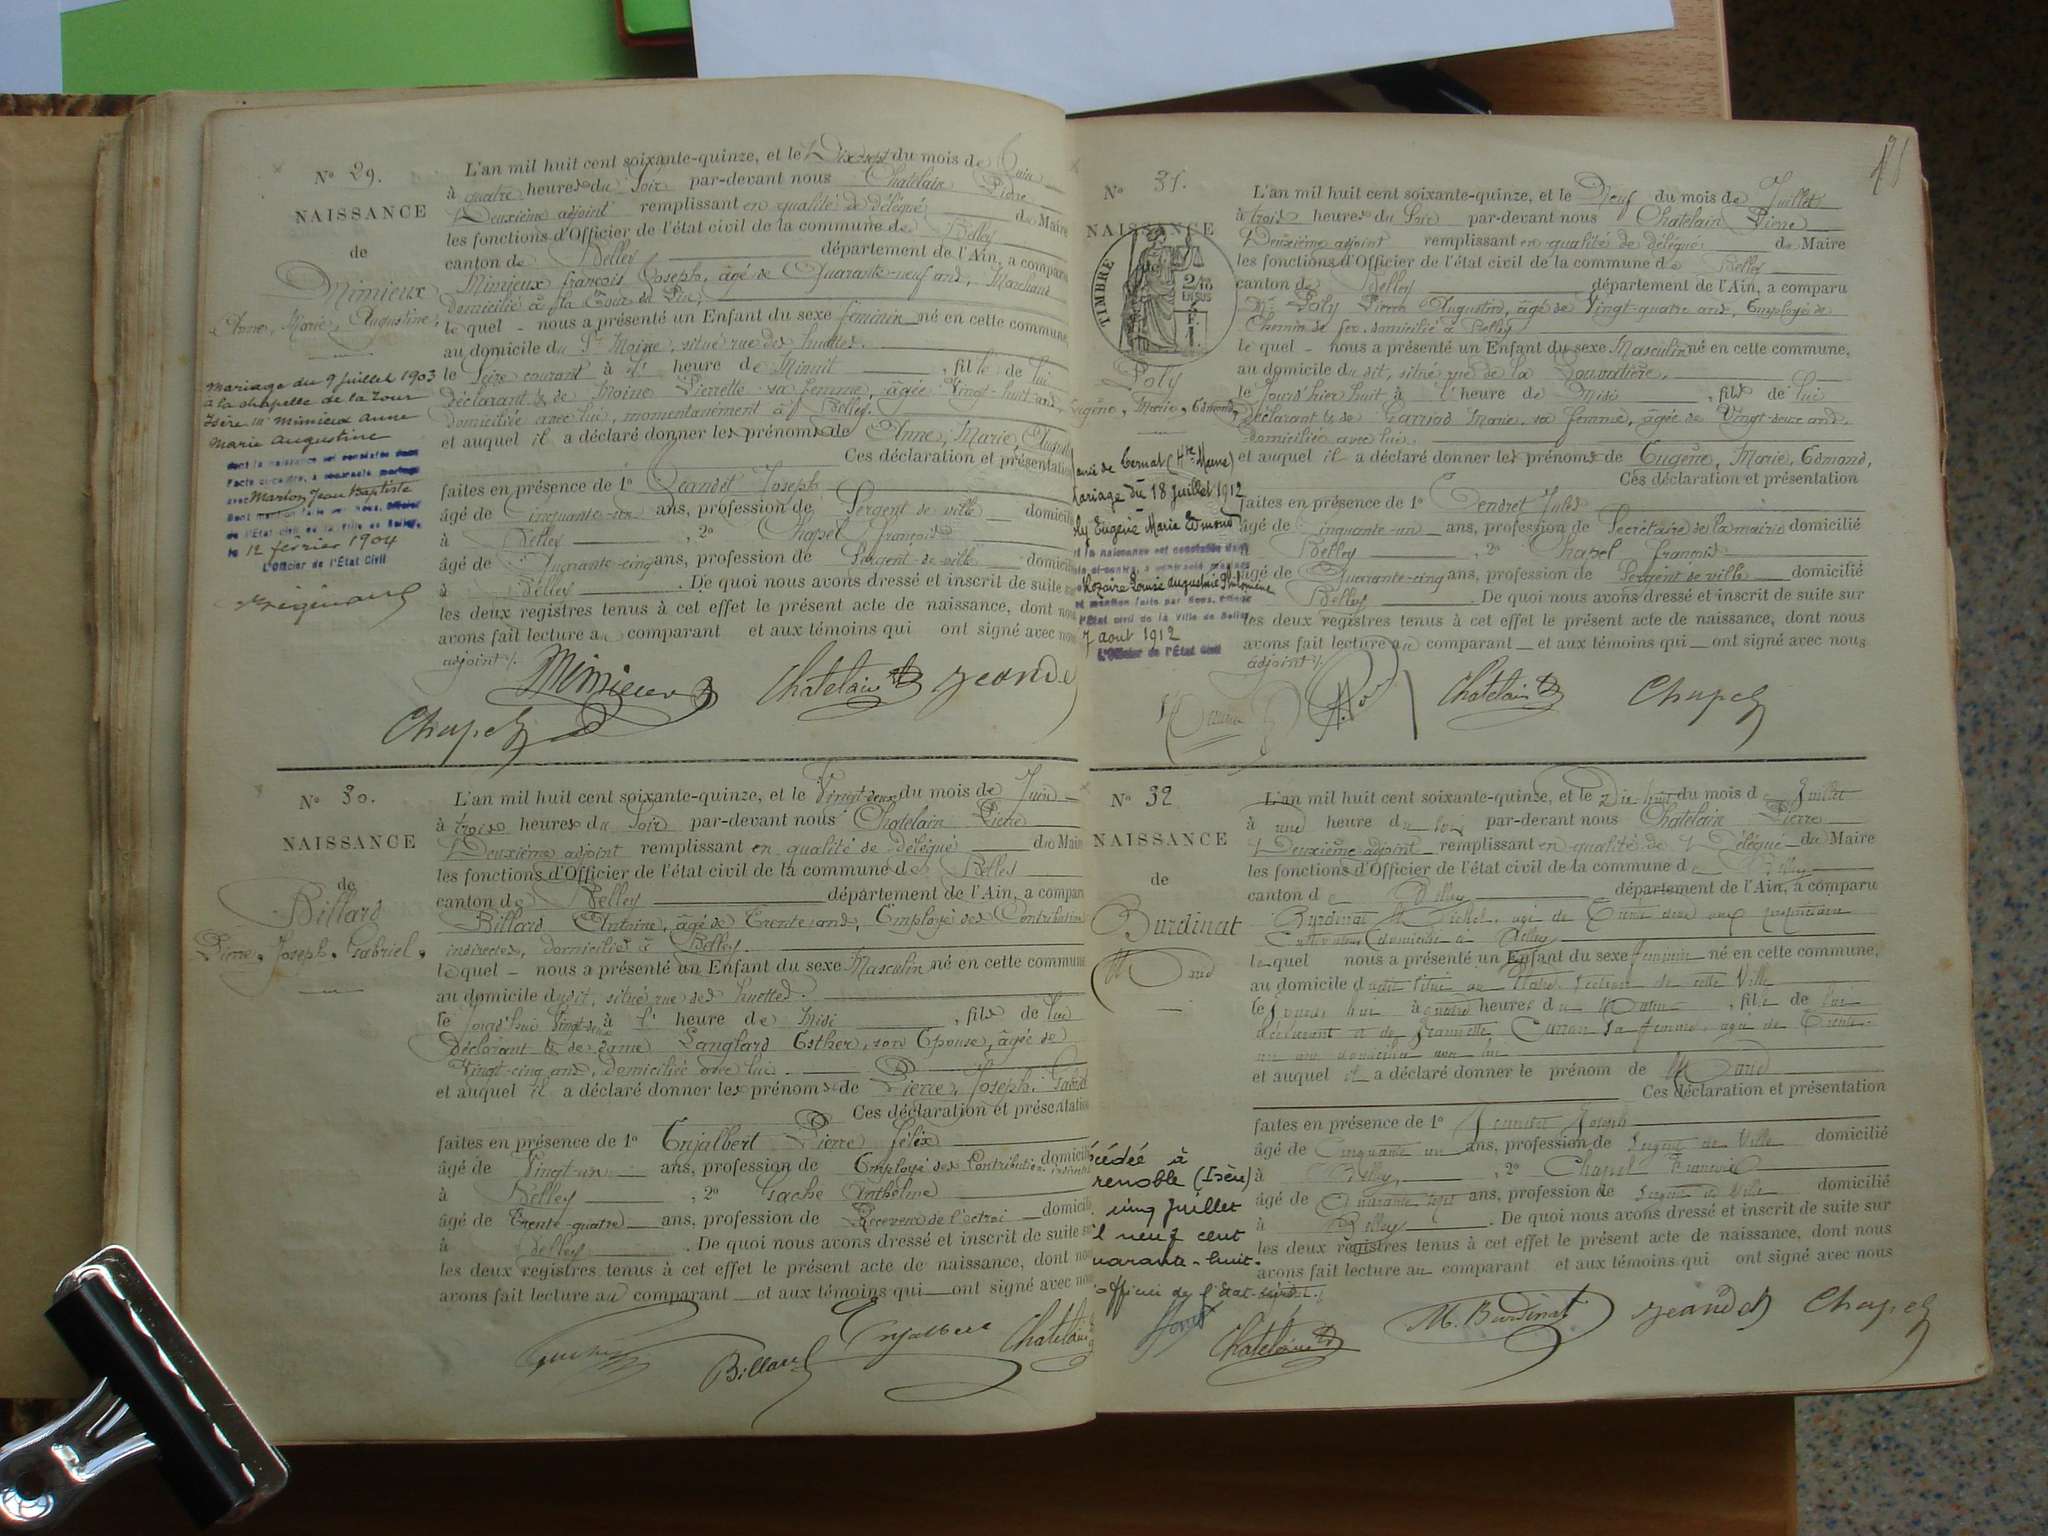 N° 29.
NAISSANCE
de
Mimieux
Anne, Marie, Augustine,
Mariage du 9 juillet 1903
à la chapelle de la Tour
Isère Mimieux Anne
Marie Augustine
dont la naissance est constatée dans
l'acte ci-contre, a contracté mariage
avec Jean Baptiste
Dont mention faite par Nous, Officier
de l'État civil de la Ville de Belley,
le 12 février 1904
L'Officier de l'État Civil
L'an mil huit cent soixante-quinze, et le Dix-sept du mois de Juin
à quatre heures du Soir par-devant nous Chatelain Pierre
Deuxième adjoint remplissant en qualité de délégué du Maire
les fonctions d'Officier de l'état civil de la commune de Belley
canton de Belley département de l'Ain, a comparu
Mimieux françois Joseph, âgé de Quarante-neuf ans, Marchand
domicilié à la Tour du Pin,
le quel - nous a présenté un Enfant du sexe feminin né en cette commune,
au domicile du Sr Moine, situé rue des huettes.
le Seize courant à l' heure de Minuit, fille de lui
déclarant & de Moine Pierrette sa femme, âgée Vingt-huit ans,
domiciliée avec lui, momentanément à Belley.
et auquel il a déclaré donner les prénoms de Anne, Marie, August
Ces déclaration et présentation
faites en présence de 1° Jeandet Joseph
âgé de Cinquante-un ans, profession de Sergent de ville domicilié
à Belley, 2° Chapel françois
âgé de Quarante-cinq ans, profession de Sergent de ville domicilié
à Belley. De quoi nous avons dressé et inscrit de suite sur
les deux registres tenus à cet effet le présent acte de naissance, dont nous
avons fait lecture au comparant et aux témoins qui ont signé avec nous
adjoint ⁒
Mimieux Chatelain Jeandet
Chapel
N° 30.
NAISSANCE
de
Billard
Pierre, Joseph, Gabriel,
L'an mil huit cent soixante-quinze, et le Vingt-deux du mois de Juin
à trois heures du Soir par-devant nous Chatelain Pierre
Deuxième adjoint remplissant en qualité de délégué du Maire
les fonctions d'Officier de l'état civil de la commune de Belley
canton de Belley département de l'Ain, a comparu
Billard Antoine, âgé de Trente ans, Employé des Contributions
indirectes, domicilié à Belley.
le quel - nous a présenté un Enfant du sexe Masculin né en cette commune
au domicile dudit, situé rue des huettes.
le jourd'hui Vingt-deux à l' heure de Midi, fils de lui
Déclarant & de dame Langlard Esther, son Epouse, âgée de
Vingt-cinq ans, domiciliée avec lui.
et auquel il a déclaré donner les prénoms de Pierre, Joseph, Gabriel
Ces déclaration et présentation
faites en présence de 1° Enjalbert Pierre félix
âgé de Vingt-un ans, profession de Employé des Contribution domicilié
à Belley, 2° Gache Anthelme
âgé de Trente-quatre ans, profession de Receveur de l'octroi domicilié
à Belley. De quoi nous avons dressé et inscrit de suite sur
les deux registres tenus à cet effet le présent acte de naissance, dont nous
avons fait lecture au comparant et aux témoins qui ont signé avec nous
Billard Enjalbert Chatelain
N° 31.
NAISSANCE
TIMBRE
2/10
EN SUS
Poly
Eugène, Marie, Edmond,
Mariage du 18 juillet 1912
Poly Eugène Marie Edmond
dont la naissance est constatée dans
l'acte ci-contre, a contracté mariage
Rozaire Louise Augustine Philomène
Dont mention faite par Nous, Officier
l'État civil de la Ville de Belley
7 aout 1912
L'Officier de l'État Civil
L'an mil huit cent soixante-quinze, et le Neuf du mois de Juillet
à trois heures du Soir par-devant nous Chatelain Pierre
Deuxième adjoint remplissant en qualité de délégué du Maire
les fonctions d'Officier de l'état civil de la commune de Belley
canton de Belley département de l'Ain, a comparu
Mr Poly Pierre Augustin, âgé de Vingt-quatre ans, Employé de
Chemin de fer, domicilié à Belley
le quel - nous a présenté un Enfant du sexe Masculin né en cette commune,
au domicile dudit, situé rue de la
le jourd'hier huit à l'heure de Midi, fils de lui
déclarant & de Marie, sa femme, âgée de Vingt-deux ans,
domiciliée avec lui.
et auquel il a déclaré donner les prénoms de Eugène, Marie, Edmond,
Ces déclaration et présentation
faites en présence de 1° Jules
âgé de Cinquante-un ans, profession de Secrétaire de la mairie domicilié
Belley, 2° Chapel françois
âgé de Quarante-cinq ans, profession de Sergent de ville domicilié
Belley. De quoi nous avons dressé et inscrit de suite sur
les deux registres tenus à cet effet le présent acte de naissance, dont nous
avons fait lecture au comparant et aux témoins qui ont signé avec nous
adjoint ⁒
Chatelain Chapel
N° 32
NAISSANCE
de
Burdinat
Marie
décédée à
Grenoble (Isère)
cinq juillet
mil neuf cent
quarante-huit.
L'officier de l'état-civil
L'an mil huit cent soixante-quinze, et le Dix huit du mois de Juillet
à une heure du soir par-devant nous Chatelain Pierre
Deuxième adjoint remplissant en qualité de Délégué du Maire
les fonctions d'Officier de l'état civil de la commune de Belley
canton de Belley département de l'Ain, a comparu
Burdinat Michel, agé de Trente deux ans propriétaire
Cultivateur domicilié à Belley
le quel nous a présenté un Enfant du sexe feminin né en cette commune,
au domicile dudit situé au section de cette Ville
le à quatre heures du Matin, fille de lui
déclarant et de Jeannette sa femme, agée de Trente
un ans domiciliée avec lui
et auquel il a déclaré donner le prénom de Marie
Ces déclaration et présentation
faites en présence de 1° Jeandet Joseph
âgé de Cinquante un ans, profession de Sergent de Ville domicilié
à Belley, 2° Chapel François
âgé de Quarante sept ans, profession de Sergent de Ville domicilié
à Belley. De quoi nous avons dressé et inscrit de suite sur
les deux registres tenus à cet effet le présent acte de naissance, dont nous
avons fait lecture au comparant et aux témoins qui ont signé avec nous
Chatelain M. Burdinat Jeandet Chapel